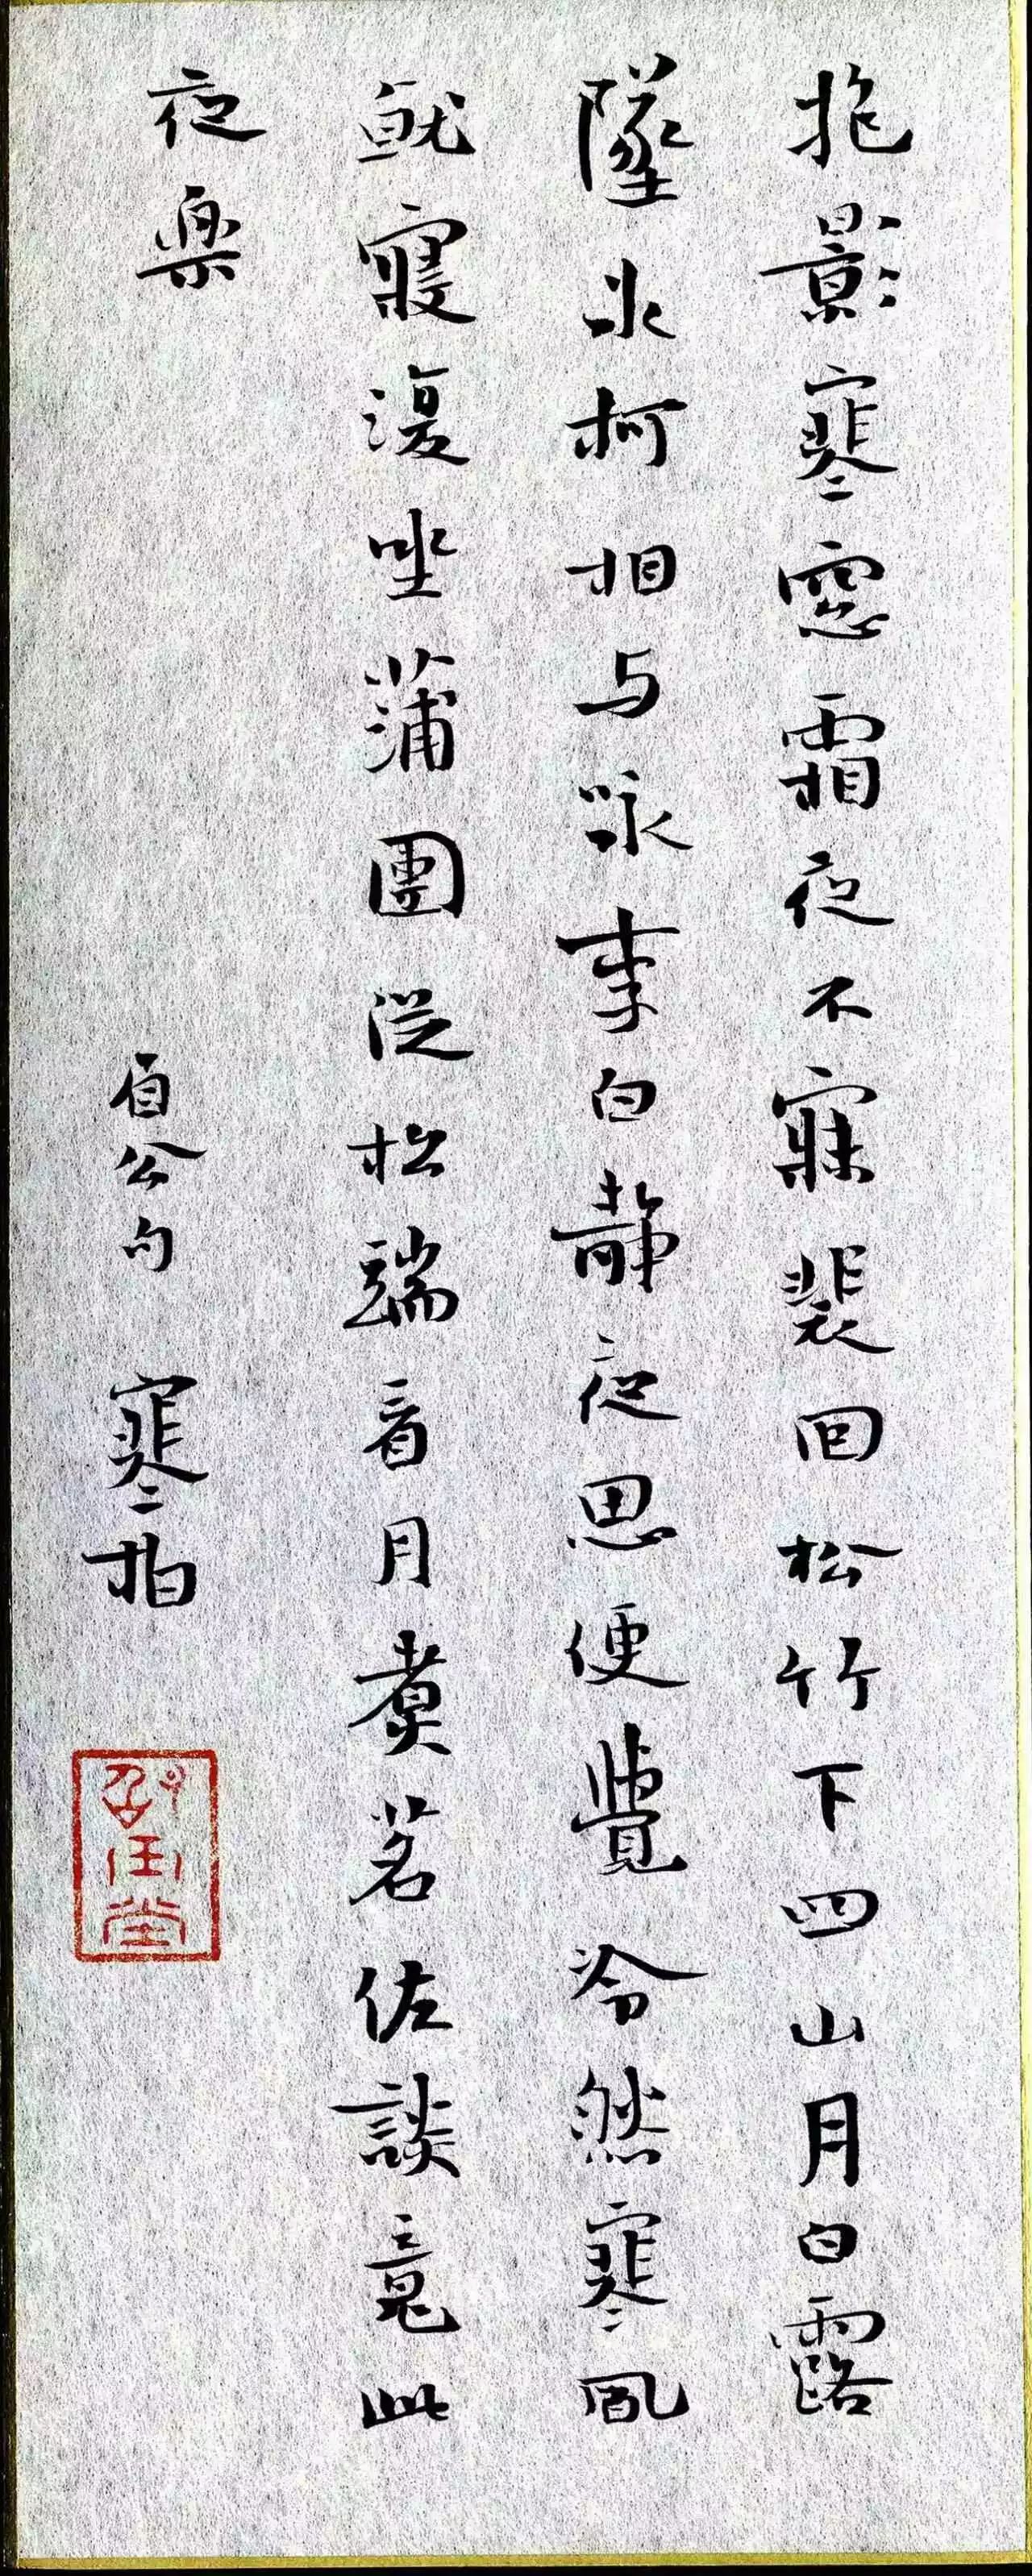 抱影寒窗霜夜不寐裴回松竹下四山月白露
墜冰柯相与咏李白靜夜思便覺冷然寒風
就寢復坐蒲團從松端看月煮茗佐談竟此
夜樂
眉公句 寒